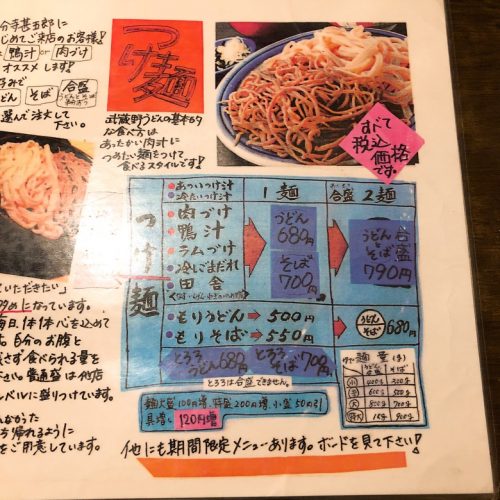 分寺甚五郎に
じめてご来店のお客様!
に 鴨汁 or 肉づけ
オススメします!
好みで
どん そば 合盛
選んで注文して
下さい。
つけ麺
武蔵野うどんの基本的
な食べ方は
あったかい肉汁に
つめたい麺をつけて
食べるスタイルです!
すべて
税込
価格
です。
つけ麺
あついつけ汁
冷たいつけ汁
1麺
合盛 2麺
肉づけ
鴨汁
ラムづけ
冷しごまだれ
田舎
うどん
680円
そば
700円
うどん
そば
合盛
790円
もりうどん→500円
もりそば→550円
うどん
そば
680円
とろろうどん680円
とろろそば700円
とろろは合盛できません。
麺大盛100円増 特盛200円増 小盛50円引
具増し 120円増
麺量(g)
うどん
合盛
そば
小
中
大
特大
いただきたい」
めになっています。
毎日、体体心を込めて
も 自分のお腹と
さず食べられる量を
さい。普通盛は他店
レベルに盛りつけています。
ち帰れるように
をご用意しています。
他にも期間限定メニューあります。ボードを見て下さい!